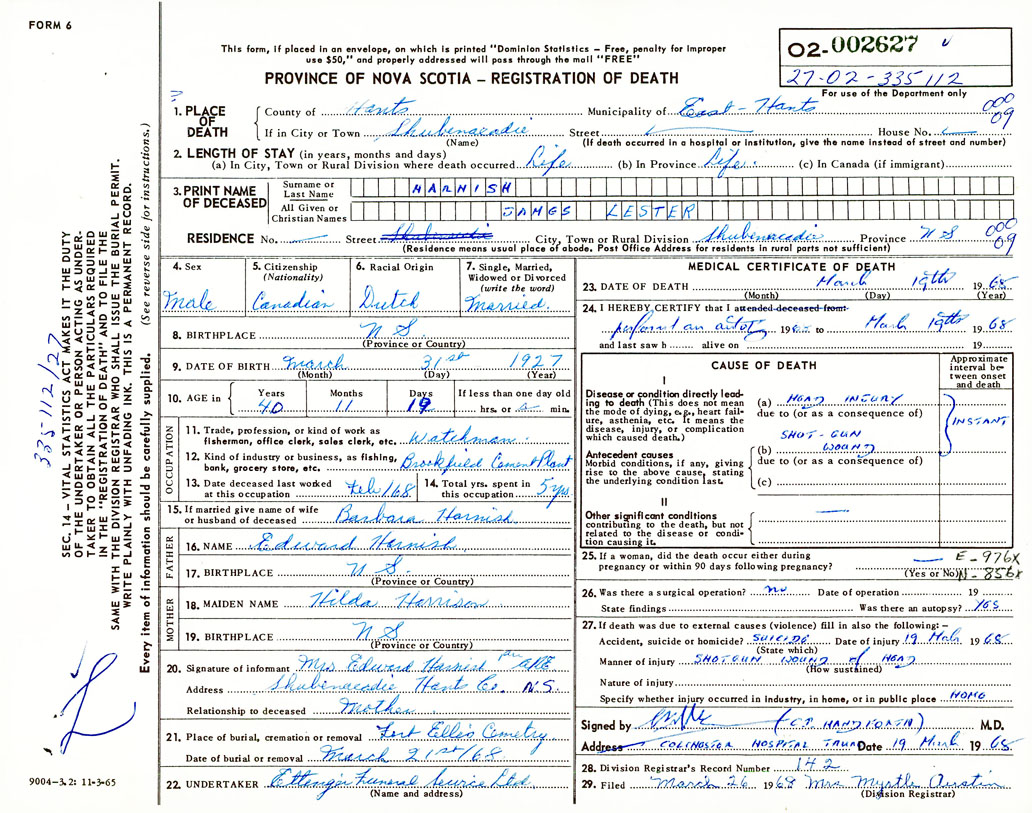 FORM 6
This form, if placed in an envelope, on which is printed "Dominion Statistics – Free, penalty for improper
use $50," and properly addressed will pass through the mail "FREE"
PROVINCE OF NOVA SCOTIA – REGISTRATION OF DEATH
02-002627
27-02-335112
For use of the Department only
1. PLACE OF DEATH
County of Hants Municipality of East-Hants
000 09
If in City or Town Shubenacadie Street House No.
(Name) (If death occurred in a hospital or institution, give the name instead of street and number)
2. LENGTH OF STAY (in years, months and days)
(a) In City, Town or Rural Division where death occurred Life (b) In Province Life (c) In Canada (if immigrant)
3. PRINT NAME OF DECEASED
Surname or Last Name HARNISH
All Given or Christian Names JAMES LESTER
RESIDENCE No. Street Shubenacadie City, Town or Rural Division Shubenacadie Province N S
000 09
(Residence means usual place of abode. Post Office Address for residents in rural parts not sufficient)
4. Sex
Male
5. Citizenship (Nationality)
Canadian
6. Racial Origin
Dutch
7. Single, Married, Widowed or Divorced (write the word)
Married.
8. BIRTHPLACE N S.
(Province or Country)
9. DATE OF BIRTH March 31st 1927
(Month) (Day) (Year)
10. AGE in
Years Months Days If less than one day old
40 11 19 hrs. or min.
OCCUPATION
11. Trade, profession, or kind of work as
fisherman, office clerk, sales clerk, etc. Watchman.
12. Kind of industry or business, as fishing,
bank, grocery store, etc. Brookfield Cement Plant
13. Date deceased last worked
at this occupation Feb/68
14. Total yrs. spent in
this occupation 5 yrs
15. If married give name of wife
or husband of deceased Barbara Harnish
FATHER
16. NAME Edward Harnish
17. BIRTHPLACE N S.
(Province or Country)
MOTHER
18. MAIDEN NAME Hilda Harrison
19. BIRTHPLACE N S
(Province or Country)
20. Signature of informant Mrs. Edward Harnish per
Address Shubenacadie Hants Co. N.S
Relationship to deceased Mother
21. Place of burial, cremation or removal Fort Ellis Cemetry
Date of burial or removal March 21st/68
22. UNDERTAKER Ettenger Funeral Service Ltd
(Name and address)
MEDICAL CERTIFICATE OF DEATH
23. DATE OF DEATH March 19th 1968
(Month) (Day) (Year)
24. I HEREBY CERTIFY that I attended deceased from
19 to March 19th 1968
and last saw h alive on 19
CAUSE OF DEATH
Approximate interval between onset and death
I
Disease or condition directly lead-
ing to death (This does not mean
the mode of dying, e.g., heart fail-
ure, asthenia, etc. It means the
disease, injury, or complication
which caused death.)
(a) HEAD INJURY
due to (or as a consequence of)
INSTANT
SHOT-GUN
(b) WOUND
Antecedent causes
Morbid conditions, if any, giving
rise to the above cause, stating
the underlying condition last.
due to (or as a consequence of)
(c)
II
Other significant conditions
contributing to the death, but not
related to the disease or condi-
tion causing it.
25. If a woman, did the death occur either during
pregnancy or within 90 days following pregnancy?
(Yes or No)
E-976X
N-856X
26. Was there a surgical operation? no Date of operation 19
State findings Was there an autopsy? YES
27. If death was due to external causes (violence) fill in also the following:–
Accident, suicide or homicide? SUICIDE Date of injury 19 March 1968
(State which)
Manner of injury SHOTGUN WOUND of HEAD
(How sustained)
Nature of injury
Specify whether injury occurred in industry, in home, or in public place HOME
Signed by M.D.
Address COLCHESTER HOSPITAL TRURO Date 19 March 1968
28. Division Registrar's Record Number 142
29. Filed March 26 1968 Mrs Myrtle Austin
(Division Registrar)
SEC. 14 – VITAL STATISTICS ACT MAKES IT THE DUTY
OF THE UNDERTAKER OR PERSON ACTING AS UNDER-
TAKER TO OBTAIN ALL THE PARTICULARS REQUIRED
IN THE "REGISTRATION OF DEATH" AND TO FILE THE
SAME WITH THE DIVISION REGISTRAR WHO SHALL ISSUE THE BURIAL PERMIT.
WRITE PLAINLY WITH UNFADING INK. THIS IS A PERMANENT RECORD.
Every item of information should be carefully supplied. (See reverse side for instructions.)
335-112/27
9004–3.2: 11-3-65